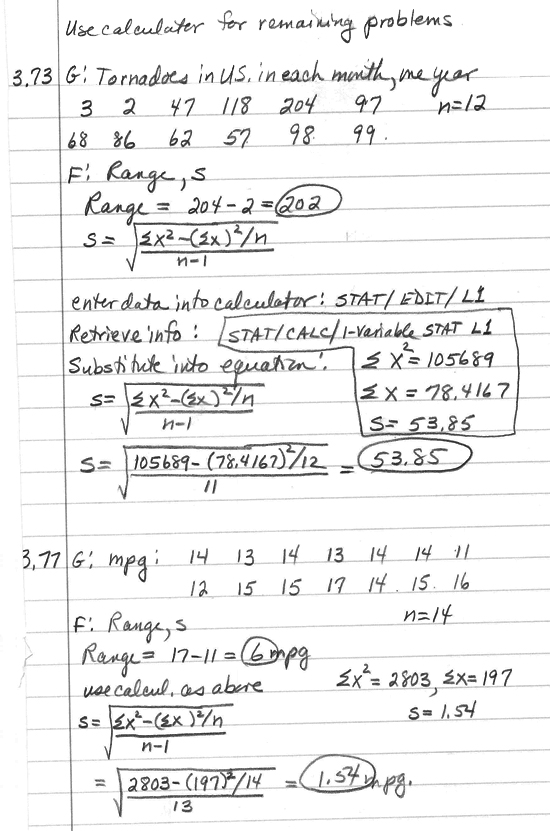 Use calculator for remaining problems
3.73 G: Tornadoes in US. in each month, one year
3 2 47 118 204 97 n=12
68 86 62 57 98 99.
F: Range, s
Range = 204 - 2 = 202
s = √(Σx² - (Σx)²/n / n-1)
enter data into calculator: STAT/ EDIT/ L1
Retrieve info: STAT/CALC/1-Variable STAT L1
Substitute into equation: Σx² = 105689
Σx = 78.4167
s = √(Σx² - (Σx)²/n / n-1) s = 53.85
s = √(105689 - (78.4167)²/12 / 11) = 53.85
3.77 G: mpg: 14 13 14 13 14 14 11
12 15 15 17 14. 15. 16
n=14
F: Range, s
Range = 17-11 = 6 mpg
use calcul. as above Σx² = 2803, Σx = 197
s = √(Σx² - (Σx)²/n / n-1) s = 1.54
= √(2803 - (197)²/14 / 13) = 1.54 mpg.